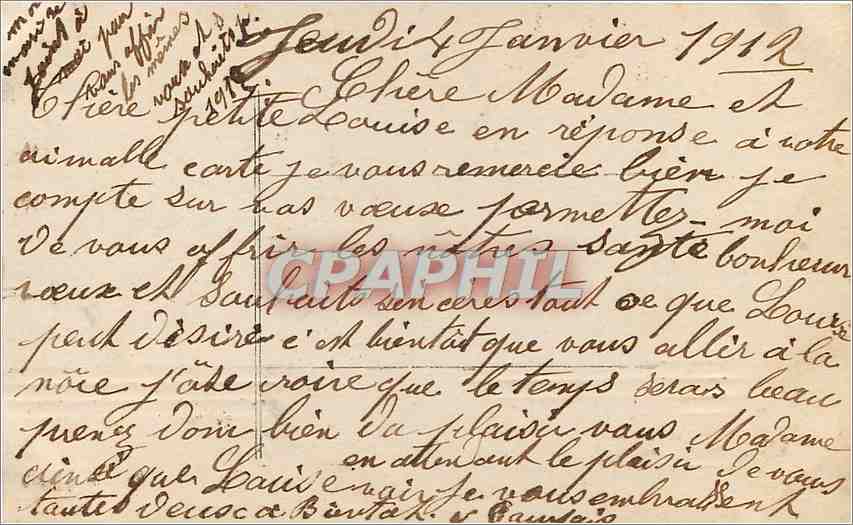 Jeudi 4 Janvier 1912
Chère Madame et
Chère petite Louise en réponse à votre
aimable carte je vous remercie bien je
compte sur vos voeux permettez-moi
de vous offrir les nôtres santé bonheur
voeux et souhaits sincères tout ce que Louise
peut désiré c'est bientôt que vous allir à la
nôce j'ôse croire que le temps serais beau
prenez donc bien du plaisir vous Madame
ainsi que Louise en attendant le plaisir de vous
voir je vous embrassent
toutes deux à Bientôt
mon
mari se
joint à
moi pour
vous offrir
les mêmes
voeux et
souhaits p.
1912
CPAPHIL